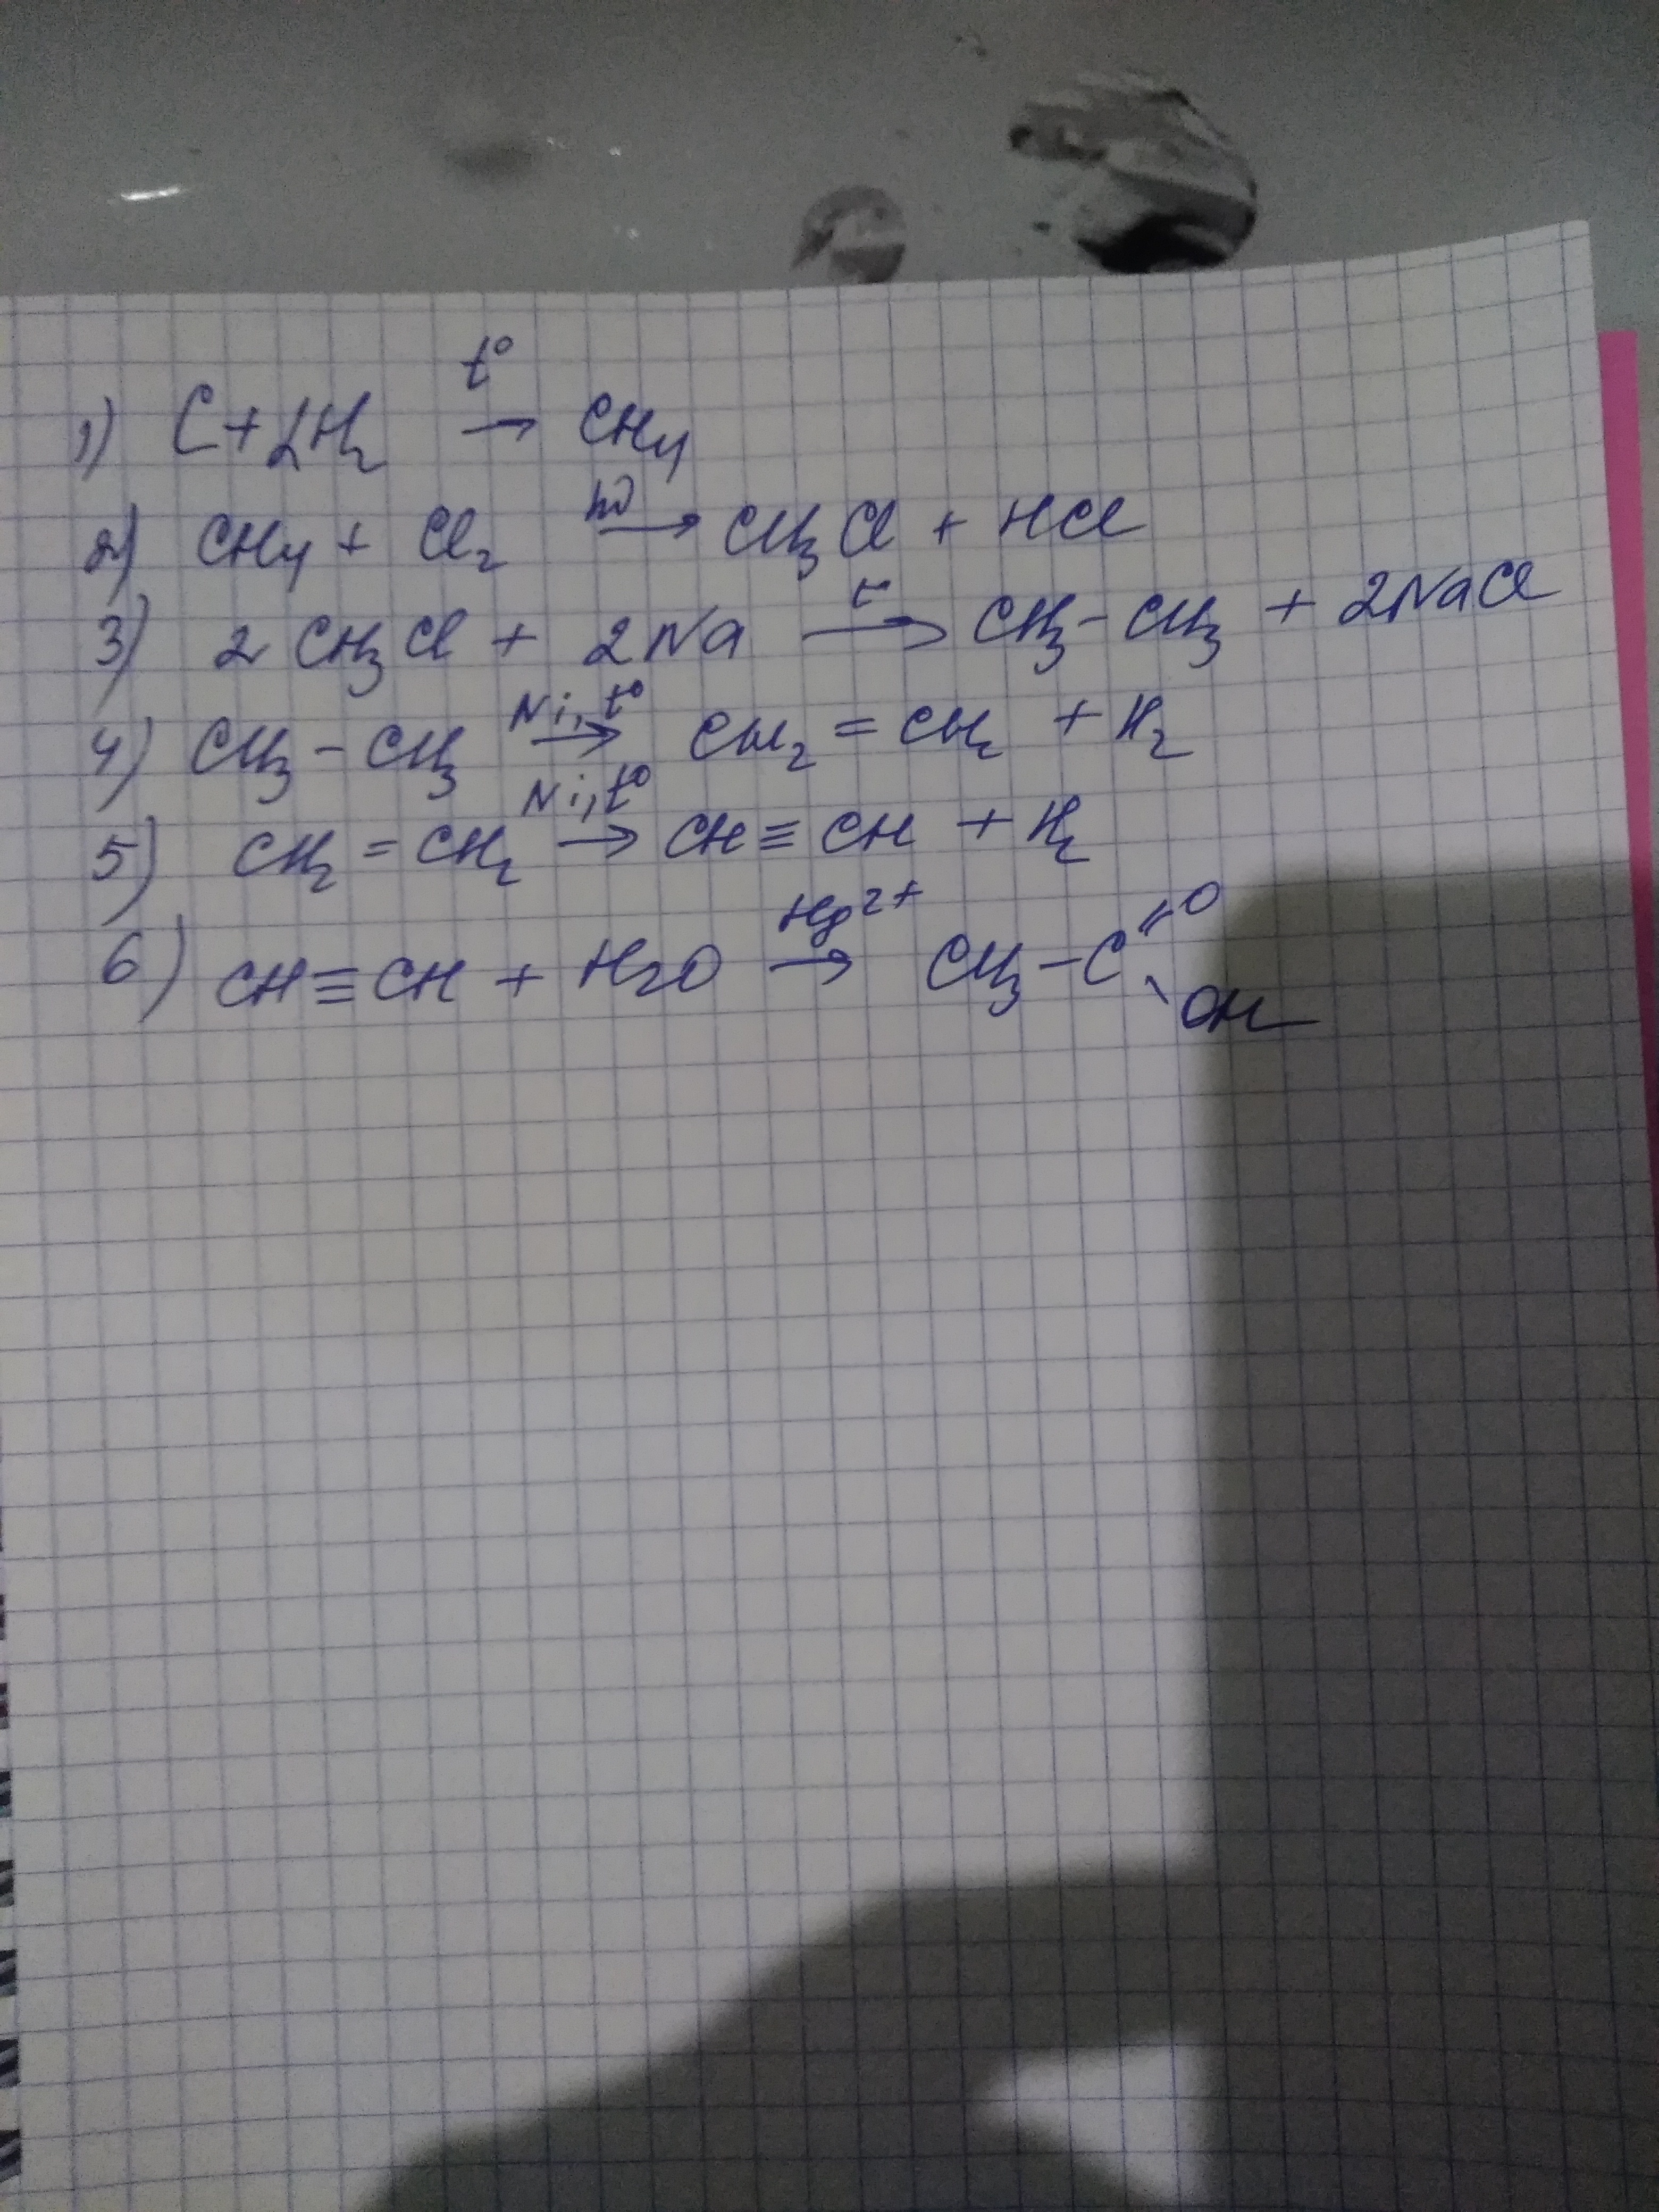 1) C + 2H₂ t° → CH₄
2) CH₄ + Cl₂ hν → CH₃Cl + HCl
3) 2CH₃Cl + 2Na t° → CH₃-CH₃ + 2NaCl
4) CH₃-CH₃ Ni, t° → CH₂=CH₂ + H₂
5) CH₂=CH₂ Ni, t° → CH≡CH + H₂
6) CH≡CH + H₂O Hg²⁺ → CH₃-C=O -OH